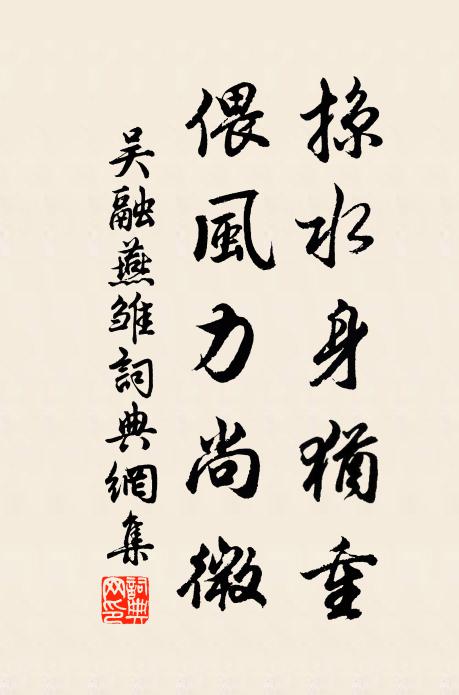 掠水身猶重
偎風力尚微
吴融燕雏詞典網集
詞典网印